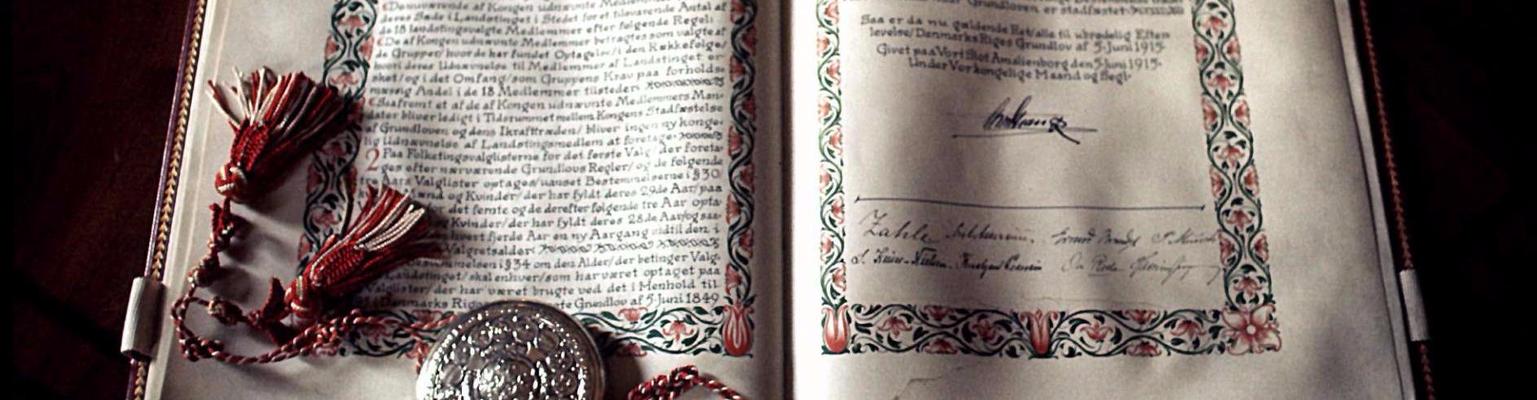 Denuværende af Kongen udnævnte Medlemmer
deres Sæde i Landstinget i Stedet for et tilsvarende Antal af
de 18 landstingsvalgte Medlemmer efter følgende Regel:
De af Kongen udnævnte Medlemmer betragtes som valgte af
de Grupper/hvor de har fundet Optagelse/i den Rækkefølge/
hvori deres Udnævnelse til Medlemmer af Landstinget er
sket/og i det Omfang/som Gruppens Krav paa forholds=
mæssig Andel i de 18 Medlemmer tilsteder.
Saafremt et af de af Kongen udnævnte Medlemmers Man=
dater bliver ledigt i Tidsrummet mellem Kongens Stadfæstelse
af Grundloven og dens Ikrafttræden/bliver ingen ny konge=
lig Udnævnelse af Landstingsmedlem at foretage.
2 Paa Folketingsvalglisterne for det første Valg/der foreta=
ges efter nærværende Grundlovs Regler/og de følgende
tre Aars Valglister optages/uanset Bestemmelserne i §30/
Mænd og Kvinder/der har fyldt deres 29de Aar/paa
for det femte og de derefter følgende tre Aar opta=
Kvinder/der har fyldt deres 28de Aar/og saa=
hvert fjerde Aar en ny Aargang indtil den i
Valgretsalder
i §34 om den Alder/der betinger Valg=
Landstinget/skal enhver/som har været optaget paa
Valglister/der har været brugte ved det i Henhold til
Danmarks Riges Grundlov af 5. Juni 1849
Grundloven er stadfæstet
Saa er da nu gældende Ret/alle til ubrødelig Efter=
levelse/Danmarks Riges Grundlov af 5. Juni 1915.
Givet paa Vort Slot Amalienborg den 5. Juni 1915.
Under Vor kongelige Haand og Segl.
Zahle Edvard Brandes P. Munch
Ove Rode